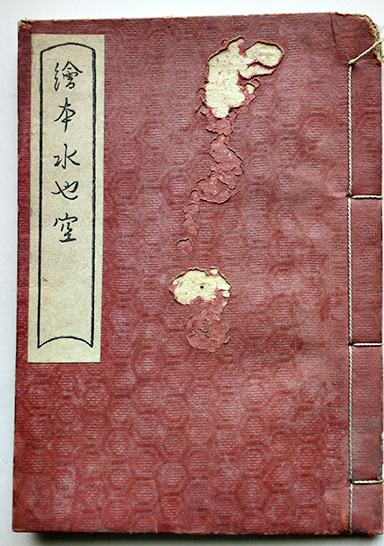 繪本水也空